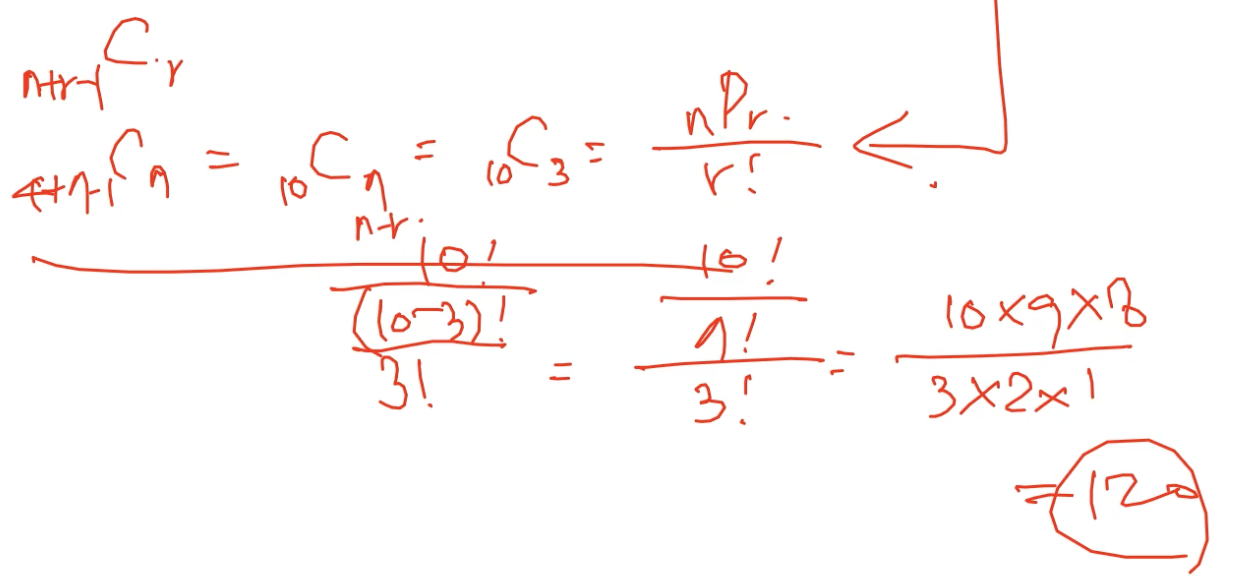 n+r-1Cr
4+7-1C7 = 10C7 = 10C3 = nPr / r!
n-r.
10! / (10-3)! / 3! = 10! / 7! / 3! = 10×9×8 / 3×2×1
=120